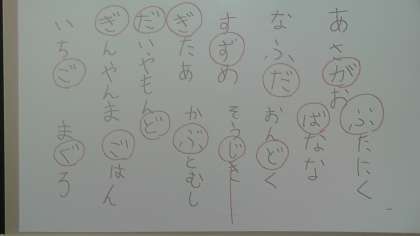 あさがお
ぶたにく
ばなな
なふだ
おんどく
すずめ
そうじき
ぎたあ
かぶとむし
だいやもんど
ぎんやんま
ごはん
いちご
まぐろ